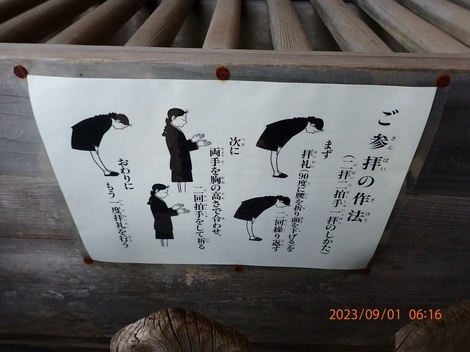 ご参拝の作法
(二拝二拍手一拝のしかた)
まず
拝礼(90度に腰を折り頭を下げる)を
二回繰り返す
次に
両手を胸の高さで合わせ、
二回拍手をして祈る
おわりに
もう一度拝礼を行う
2023/09/01 06:16